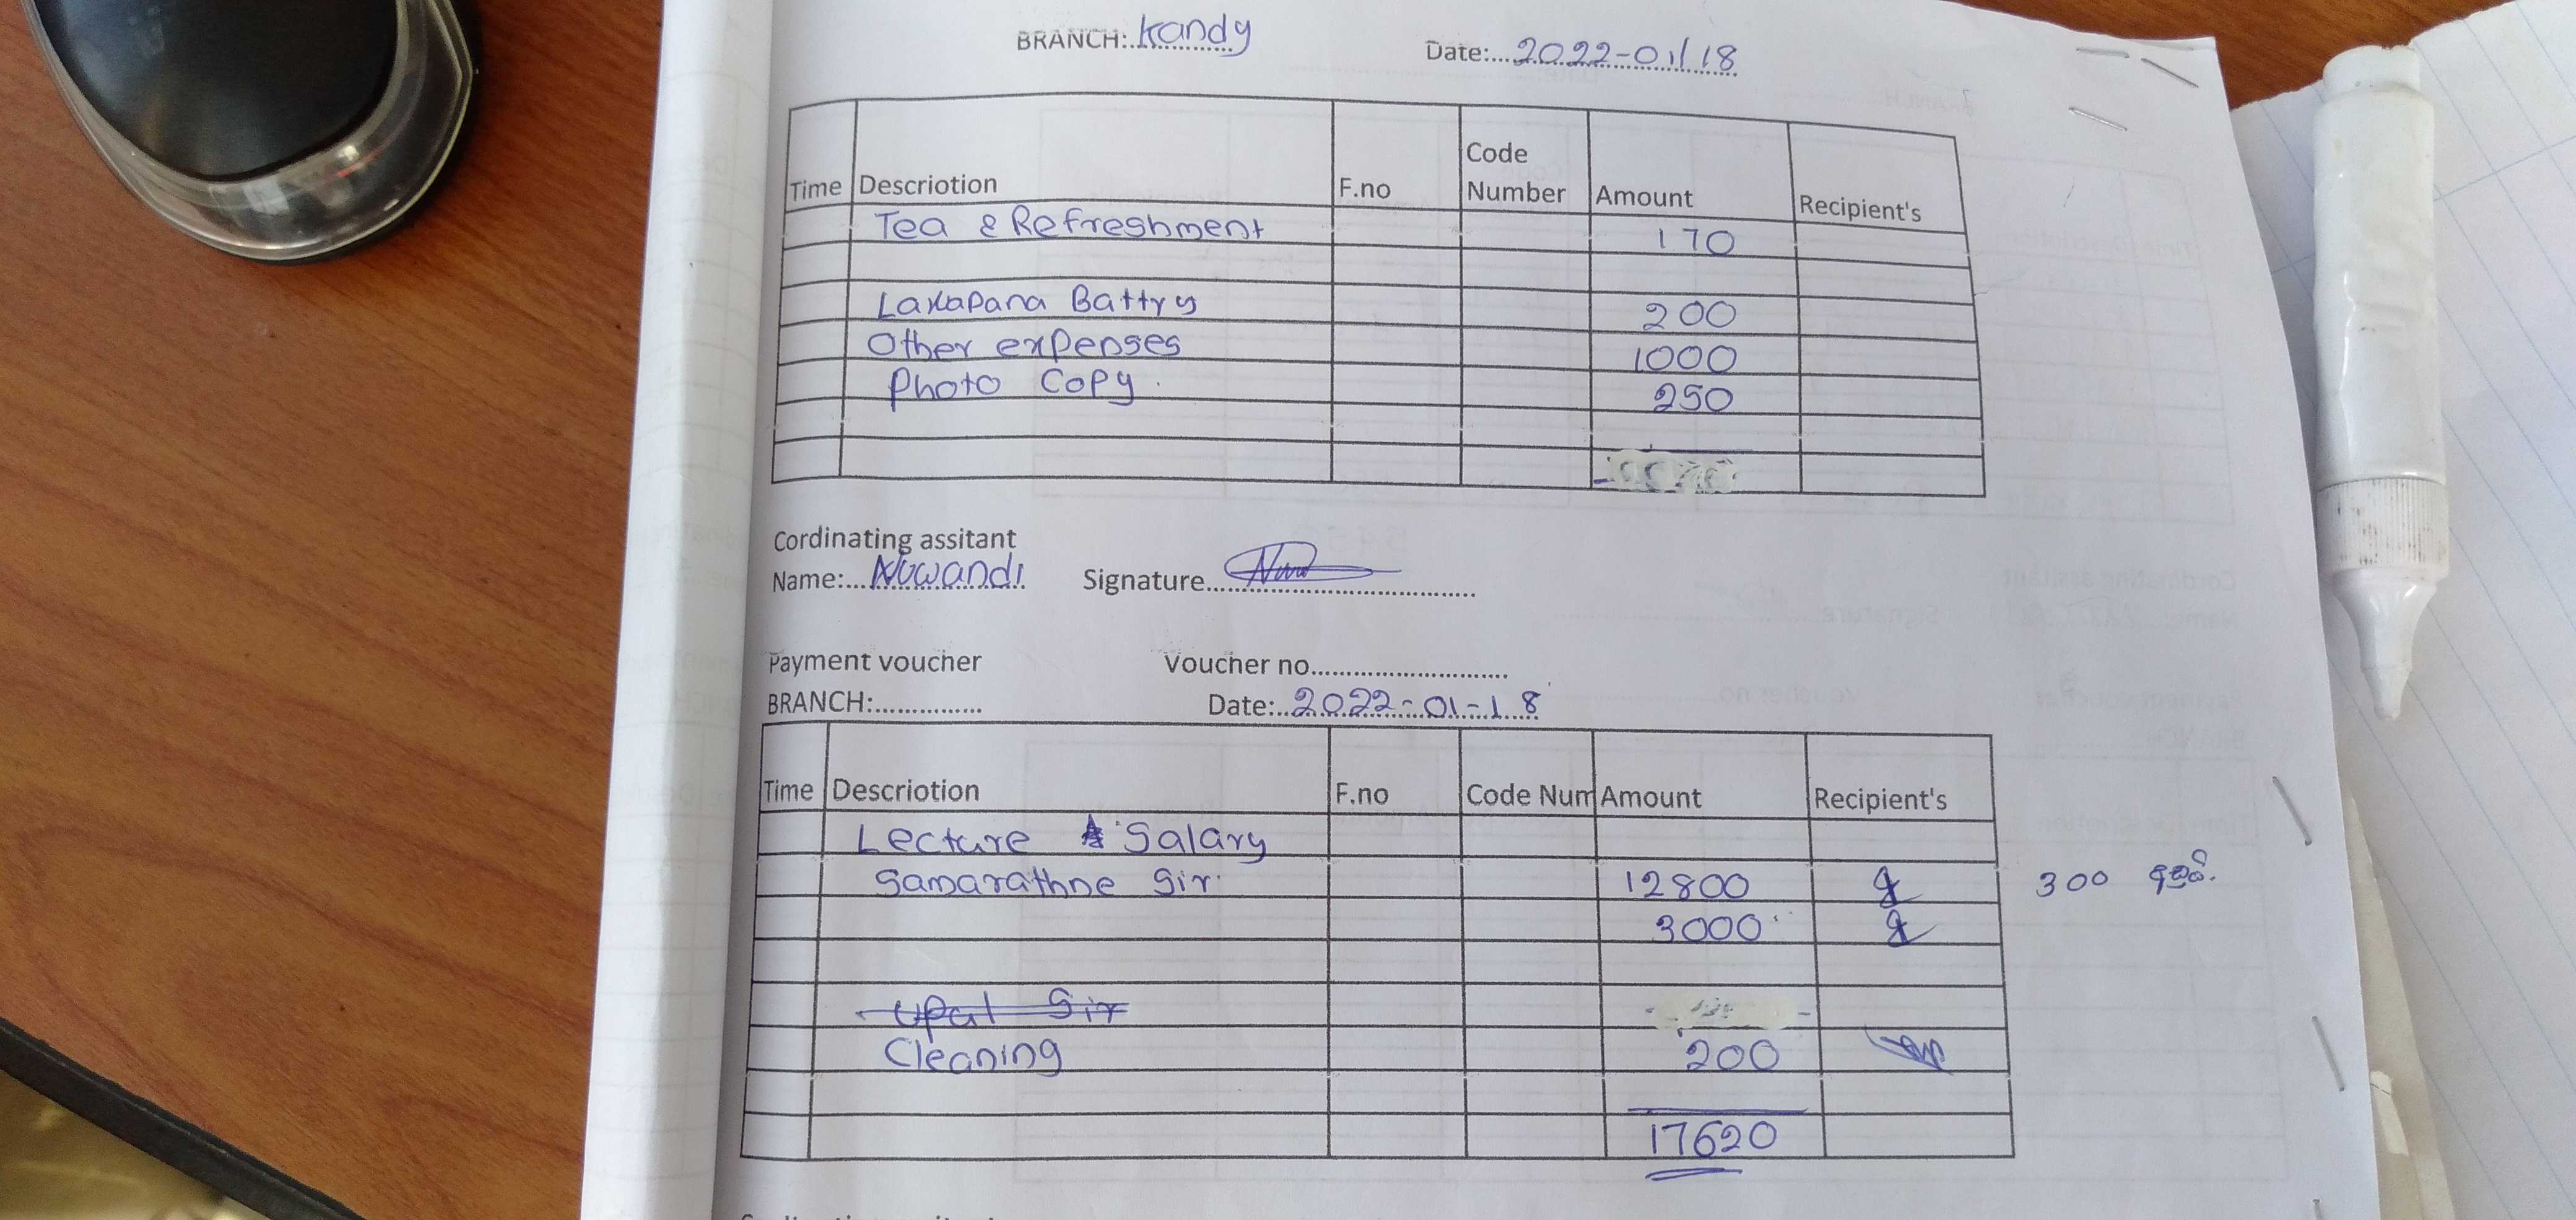 BRANCH:..Kandy Date:....2022-01/18
Time Descriotion F.no Code Number Amount Recipient's
Tea & Refreshment 170
Laxapana Battry 200
Other expenses 1000
Photo Copy. 250
Cordinating assitant
Name:...Nuwandi Signature..............
Payment voucher Voucher no..............
BRANCH:............... Date:..2022-01-18
Time Descriotion F.no Code Num Amount Recipient's
Lecture Salary
Samarathne Sir. 12800 300
3000
Upul Sir
Cleaning 200
17620